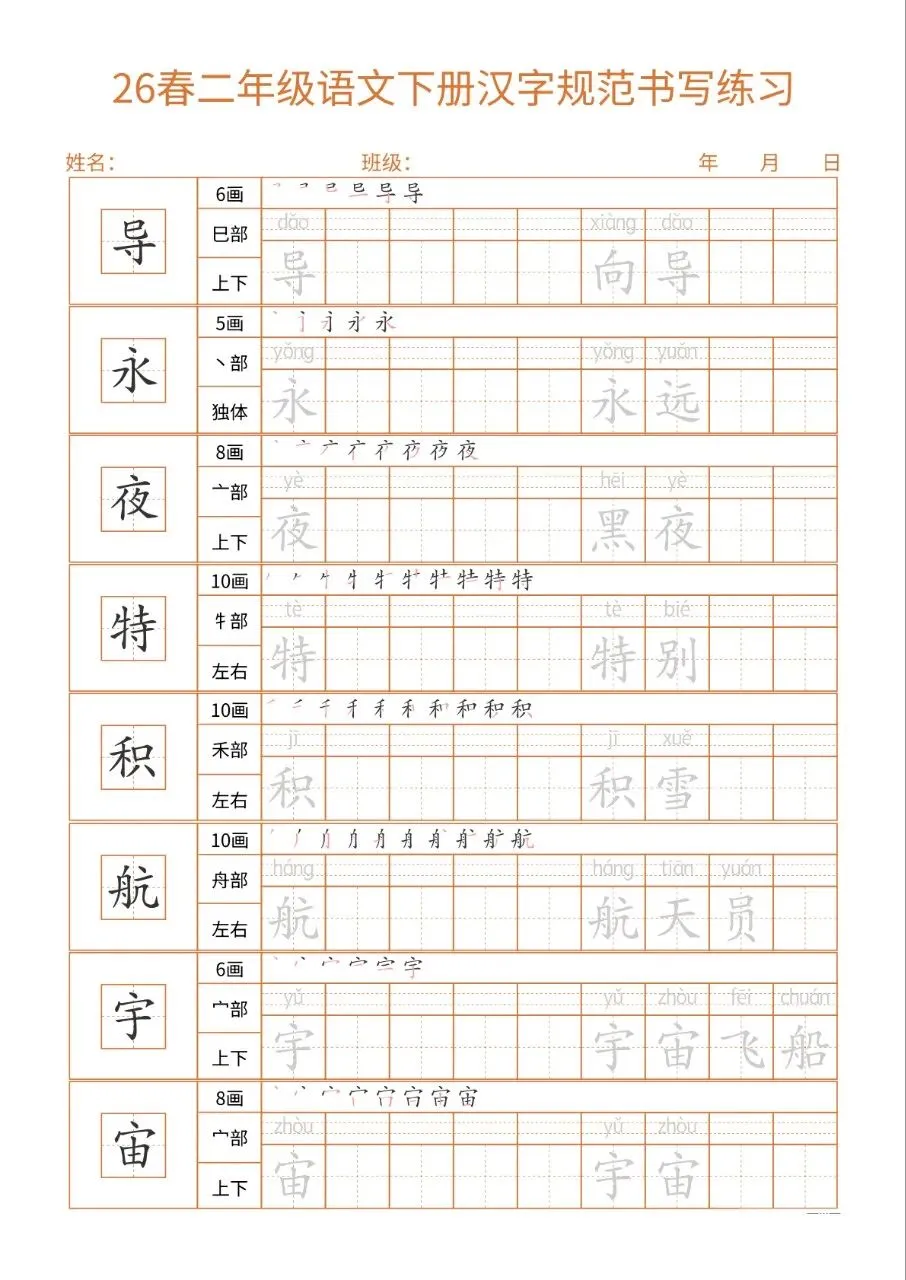 26春二年级语文下册汉字规范书写练习
姓名： 班级： 年 月 日
导
6画
巳部
上下
dǎo xiàng dǎo
导 向导
永
5画
丶部
独体
yǒng yǒng yuǎn
永 永远
夜
8画
亠部
上下
yè hēi yè
夜 黑夜
特
10画
牜部
左右
tè tè bié
特 特别
积
10画
禾部
左右
jī jī xuě
积 积雪
航
10画
舟部
左右
háng háng tiān yuán
航 航天员
宇
6画
宀部
上下
yǔ yǔ zhòu fēi chuán
宇 宇宙飞船
宙
8画
宀部
上下
zhòu yǔ zhòu
宙 宇宙